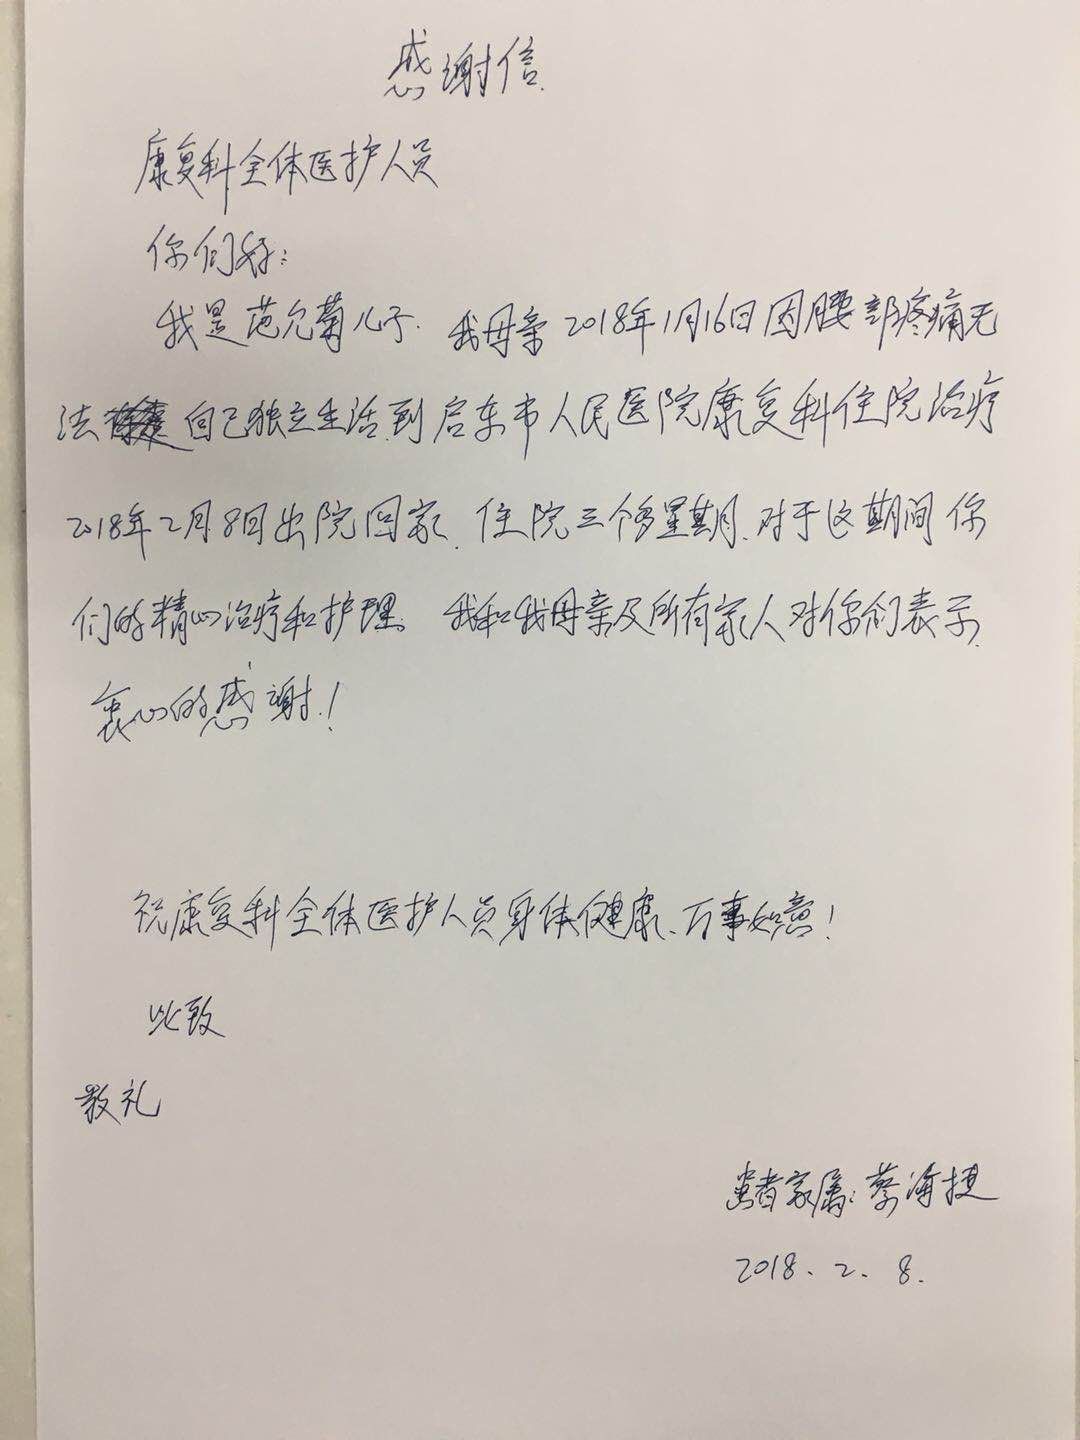 感谢信
康复科全体医护人员
你们好：
我是范允菊儿子. 我母亲2018年1月16日因腰部疼痛无
法自己独立生活到启东市人民医院康复科住院治疗
2018年2月8日出院回家. 住院三个多星期、对于这期间你
们的精心治疗和护理、我和我母亲及所有家人对你们表示
衷心的感谢！
祝康复科全体医护人员身体健康、万事如意！
此致
敬礼
患者家属：蔡海捷
2018. 2. 8.